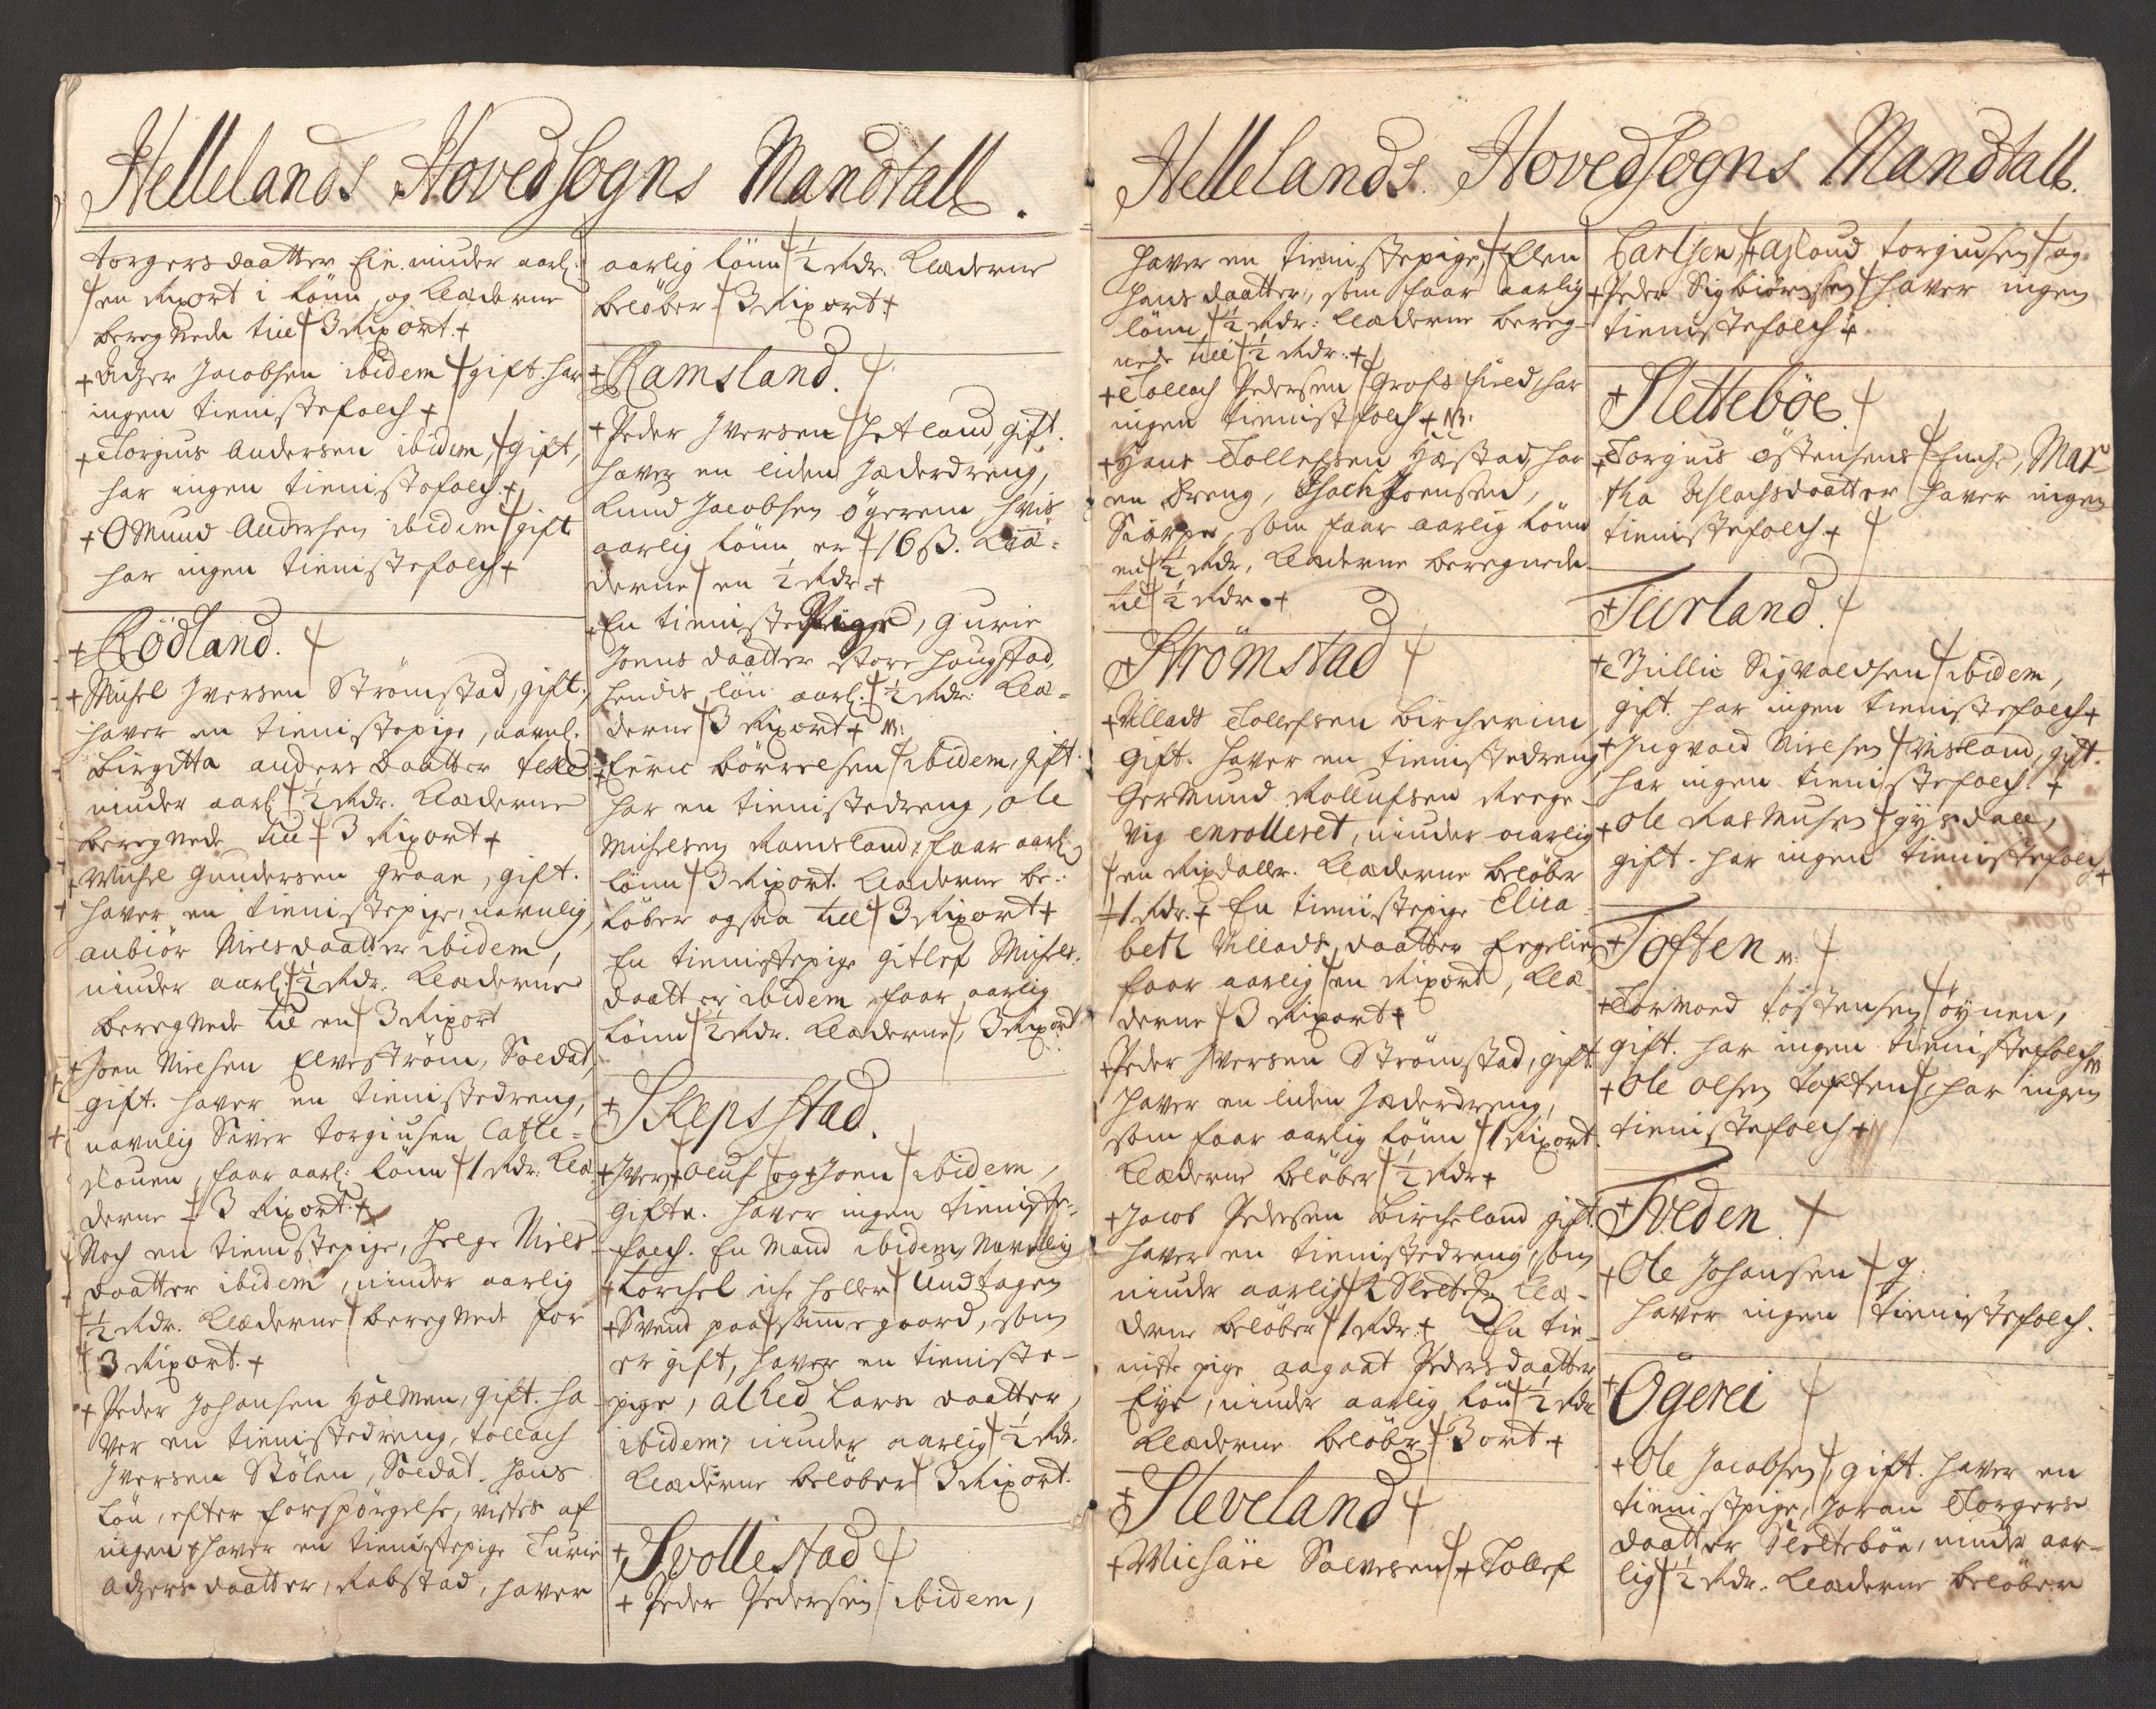 Hellelands Hovedsogns Mandtall.
torgersdaatter Eie. niuder aarl:
en Rixort i lönn, og Klæderne
beregnede till 3 Rixort +
+ Adzer Jacobsen ibidem gift. har
ingen tienistefolch +
+ Torgius Andersen ibidem, gift,
har ingen tienistefolch. +
+ Omund Andersen ibidem gift
har ingen tienistefolch +
+ Rödland.
+ Michel Iversen Strömstad, gift.
haver en tienistepige, navnl.
Birgitta anders Daatter
niuder aarl: ½ Rdr. Klæderne
beregnede till 3 Rixort +
+ Michel Gundersen Graae, gift.
haver en tienistepige, navnlig,
anbiör Nielsdaatter ibidem,
niuder aarl: ½ Rdr. Klæderne
beregnede til en 3 Rixort
+ Joen Nielsen Elveström, Soldat,
gift. haver en tienistedreng,
navnlig Siver torgiusen
faar aarl: lönn 1 Rdr: Klæ-
derne 3 Rixort. +
Noch en tienistepige, Helge Niels-
daatter ibidem, niuder aarlig
½ Rdr. Klæderne beregnede for
3 Rixort. +
+ Peder Johansen Holmen, gift. ha-
ver en tienistedreng, tollach
Iversen Stölen, Soldat. hans
lön, efter forspörgelse, vistes af
ingen + haver en tienistepige Turie
Adzersdaatter, Rabstad, haver
aarlig lönn ½ Rdr. Klæderne
belöber 3 Rixort +
+ Ramsland.
+ Peder Iversen Hetland gift.
haver en liden Hæderdreng,
Knud Jacobsen Ögereie hvis
aarlig lönn er 16 ß. Klæ-
derne en ½ Rdr +
+ En tieniste Pige, Gurie
Joensdaatter store Haugstad,
hendis lön aarl: ½ Rdr: Klæ-
derne 3 Rixort +
+ Eric Börreelsen ibidem, gift.
har en tienistedreng, Ole
Michelsen Ramsland, faar aarl:
lönn 3 Rixort. Klæderne be-
löber ogsaa till 3 Rixort +
En tienistepige Gitlef Michels-
daatter ibidem faar aarlig
lönn ½ Rdr. Klæderne, 3 Rixort
+ Skepsstad.
+ Iver, + Oluf og + Joen ibidem,
Gifte. haver ingen tieniste-
folch. En Mand ibidem, Navnlig
+ Torchel iche heller Undtagen
+ Svend paa samme gaard, som
er gift, haver en tieniste-
pige, alled Lars daatter,
ibidem, niuder aarlig ½ Rdr.
Klæderne belöber 3 Rixort.
+ Svollestad
+ Peder Pedersen ibidem,
Hellelands Hovedsogns Mandtall.
haver en tienistepige, Elen
Hansdaatter, som faar aarlig
lönn ½ Rdr: Klæderne bereg-
nede till ½ Rdr. +
+ Tollach Pedersen Grofs field, har
ingen tienistfolch +
+ Hans Tollefsen Hæstad, har
en Dreng, Joensen,
som faar aarlig lönn
en ½ Rdr, Klæderne beregnede
til ½ Rdr. +
+ Strömstad
+ Villads Tollefsen Bircherim
gift. haver en tienistedreng
Germund Rollufsen Rege-
vig enrolleret, niuder aarlig
en Rixdallr. Klæderne belöber
1 Rdr. + En tienistepige Elisa-
beth Villads daatter
faar aarlig en Rixort, Klæ-
derne 3 Rixort +
+ Peder Iversen Strömstad, gift.
haver en liden Hæderdreng,
som faar aarlig lönn 1 Rixort.
Klæderne belöber ½ Rdr +
+ Jacob Pedersen Bircheland gift.
haver en tienistedreng, som
niuder aarlig 2 Sletdr. Klæ-
derne belöber 1 Rdr. + En tie-
niste pige aagaat Pedersdaatter
Eye, niuder aarlig lön ½ Rdr
Klæderne belöber 3 ort +
+ Steveland
+ Michäel Salvesen, + Tollef
Carlsen, + Asloud torgiusen og
+ Peder Sigbiörnsen haver ingen
tienistefolch +
+ Slettebøe.
+ Torgius Östensens Enche, Mar-
tha Aslachsdaatter haver ingen
tienistefolch. +
+ Turland.
+ Sigvaldsen ibidem,
gift. har ingen tienistefolch +
+ Ingvald Nielsen Visland, gift.
har ingen tienistefolch. +
+ Ole Rasmusen gysdall,
gift. har ingen tienistefolch +
+ Toften
+ Tormoed töstensen öynen,
gift. har ingen tienistefolch
+ Ole Olsen toften, har ingen
tienistefolch +
+ Tveden.
+ Ole Johansen g.
haver ingen tienistefolch.
+ Ögerei
+ Ole Jacobsen, gift. haver en
tienistpige, Joran Torgers
daatter Slettebøe, niuder aar-
lig ½ Rdr. Klæderne belöber